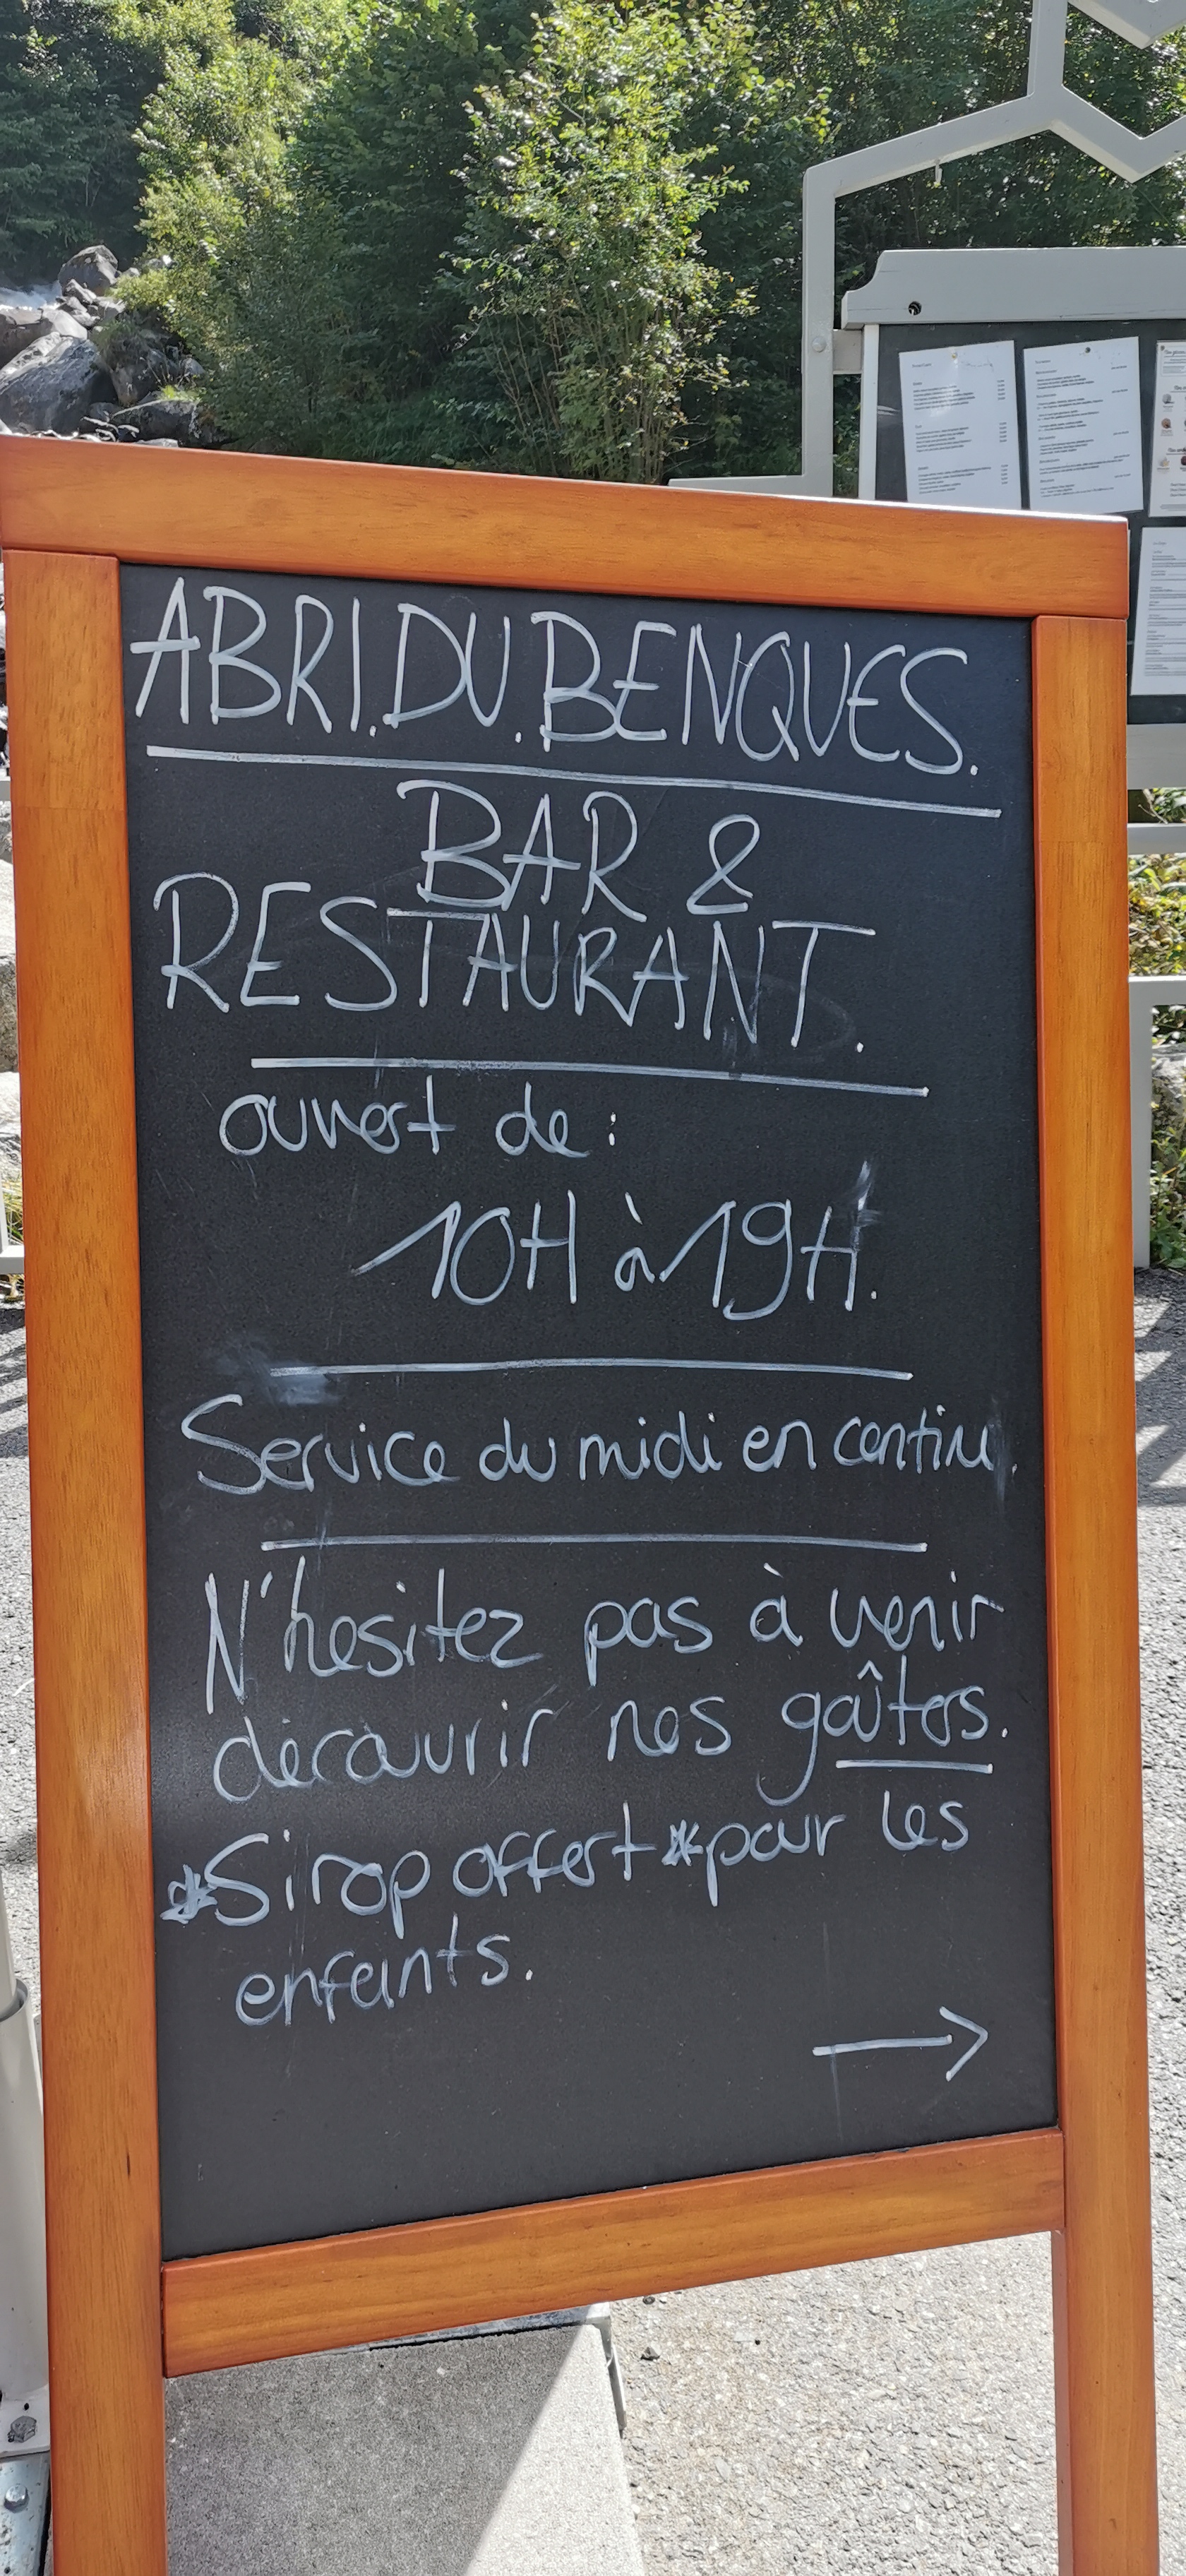 ABRI.DU.BENQUES.
BAR &
RESTAURANT.
ouvert de :
10H à 19H.
Service du midi en continu.
N'hesitez pas à venir
découvrir nos goûters.
*Sirop offert* pour les
enfants.